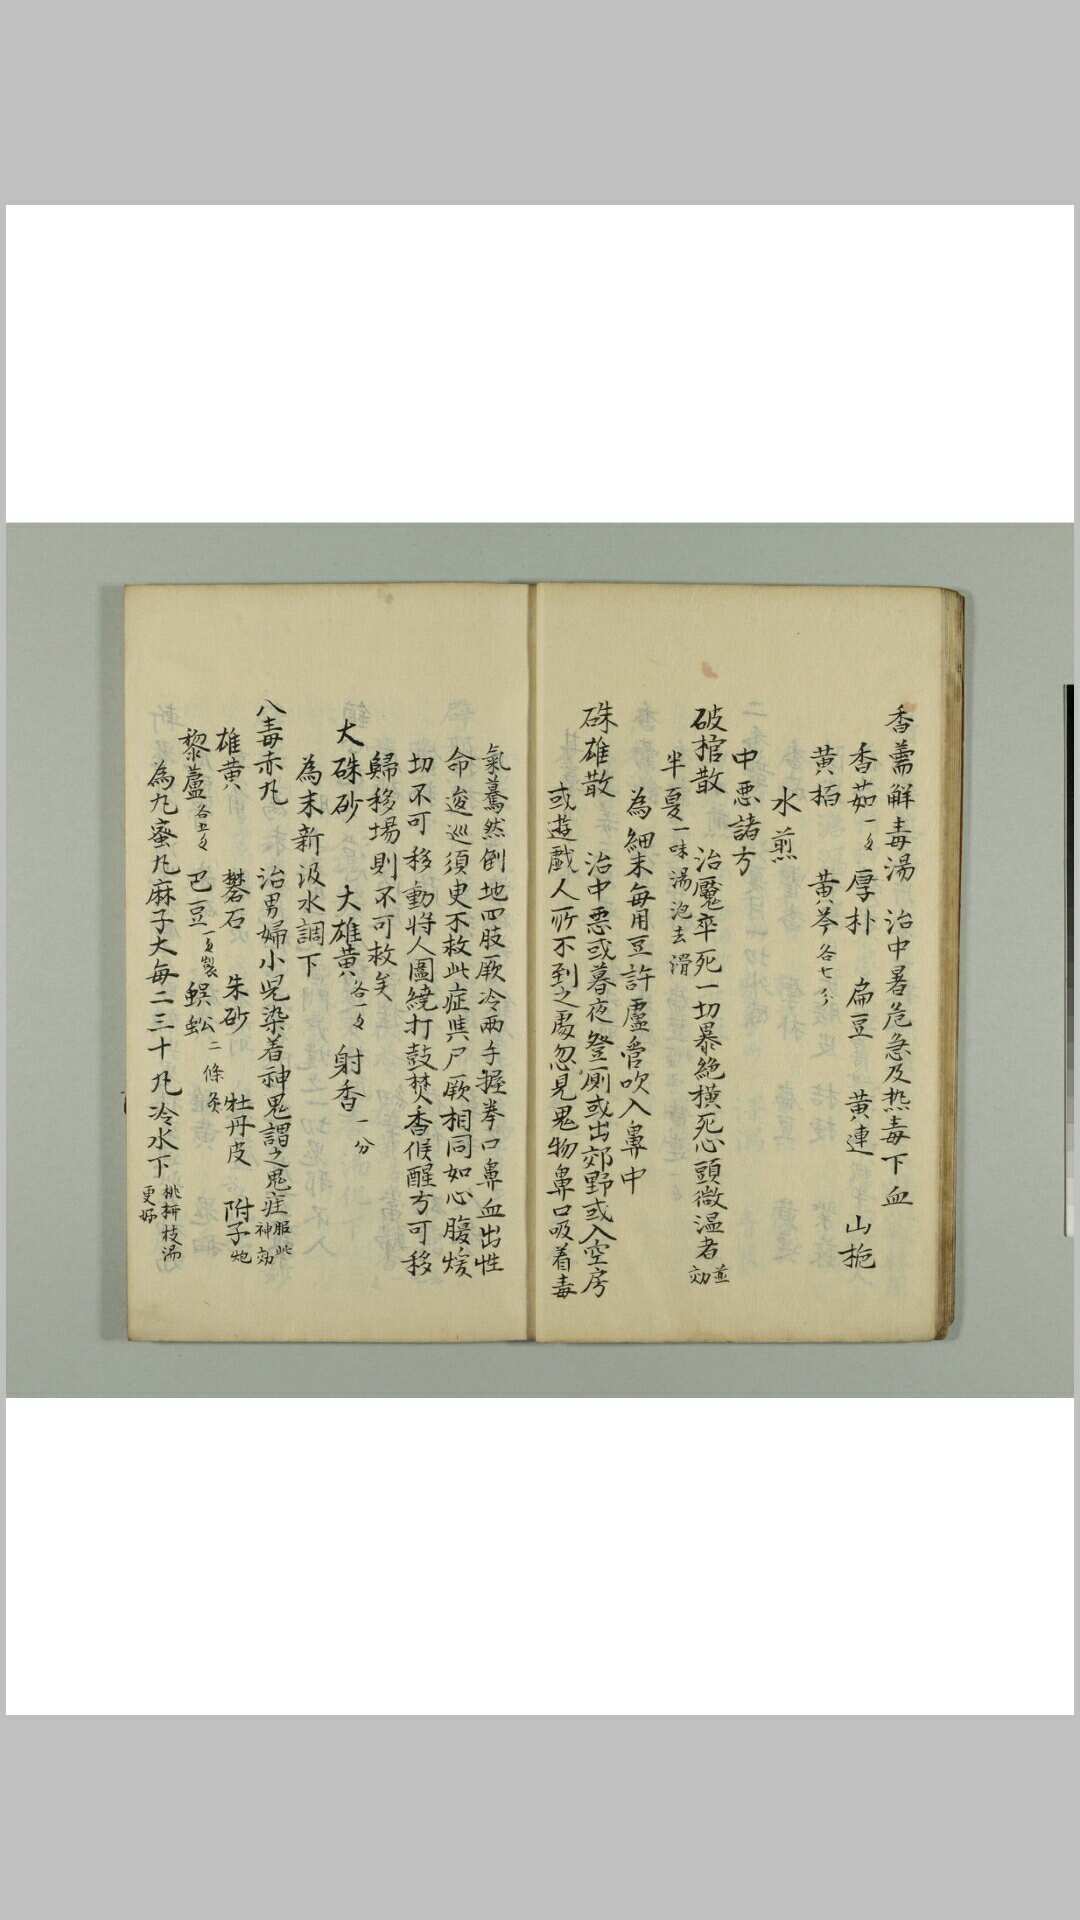 香薷解毒湯　治中暑危急及热毒下血
香茹一匁　厚朴　扁豆　黄連　山梔
黄栢　黄芩各七分
水煎
中悪諸方
破棺散　治魘卒死一切暴絶横死心頭微温者並効
半夏一味湯泡去滑
為細末毎用豆許蘆管吹入鼻中
硃雄散　治中悪或暮夜登厠或出郊野或入空房
或遊戯人所不到之處忽見鬼物鼻口吸着毒
氣驀然倒地四肢厥冷两手握拳口鼻血出性
命逡巡須臾不救此症与尸厥相同如心腹煖
切不可移動将人圍繞打鼓焚香候醒方可移
歸移場則不可救矣
大硃砂　大雄黄各一匁　射香一分
為末新汲水調下
八毒赤丸　治男婦小児染着神鬼謂之鬼疰服此神効
雄黄　礬石　朱砂　牡丹皮　附子炮
黎蘆各五匁　巴豆一匁製　蜈蚣二條炙
為丸蜜丸麻子大毎二三十丸冷水下桃枝湯更好